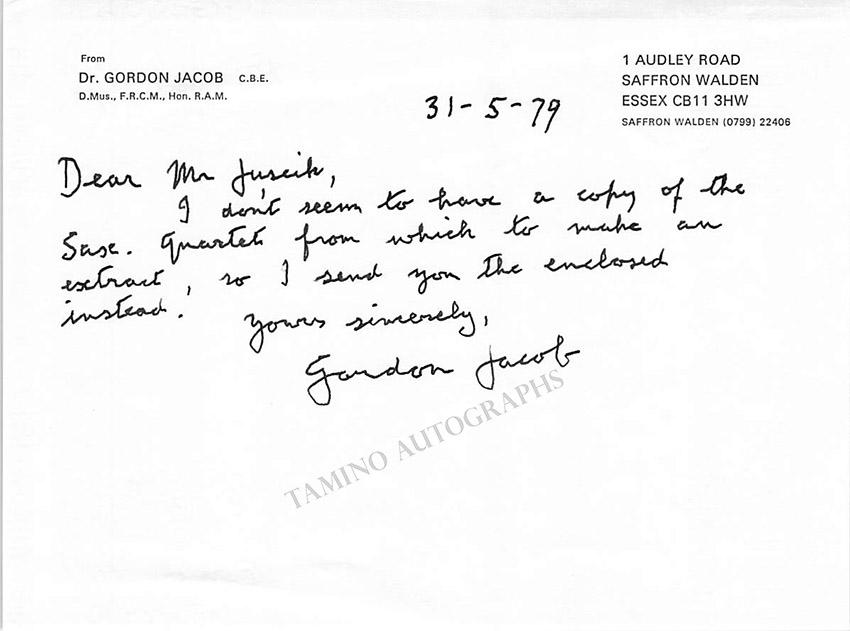 From
Dr. GORDON JACOB C.B.E.
D.Mus., F.R.C.M., Hon. R.A.M.
1 AUDLEY ROAD
SAFFRON WALDEN
ESSEX CB11 3HW
SAFFRON WALDEN (0799) 22406
31-5-79
Dear Mr
I don't seem to have a copy of the
Saxe. Quartet from which to make an
extract, so I send you the enclosed
instead. Yours sincerely,
Gordon Jacob
TAMINO AUTOGRAPHS